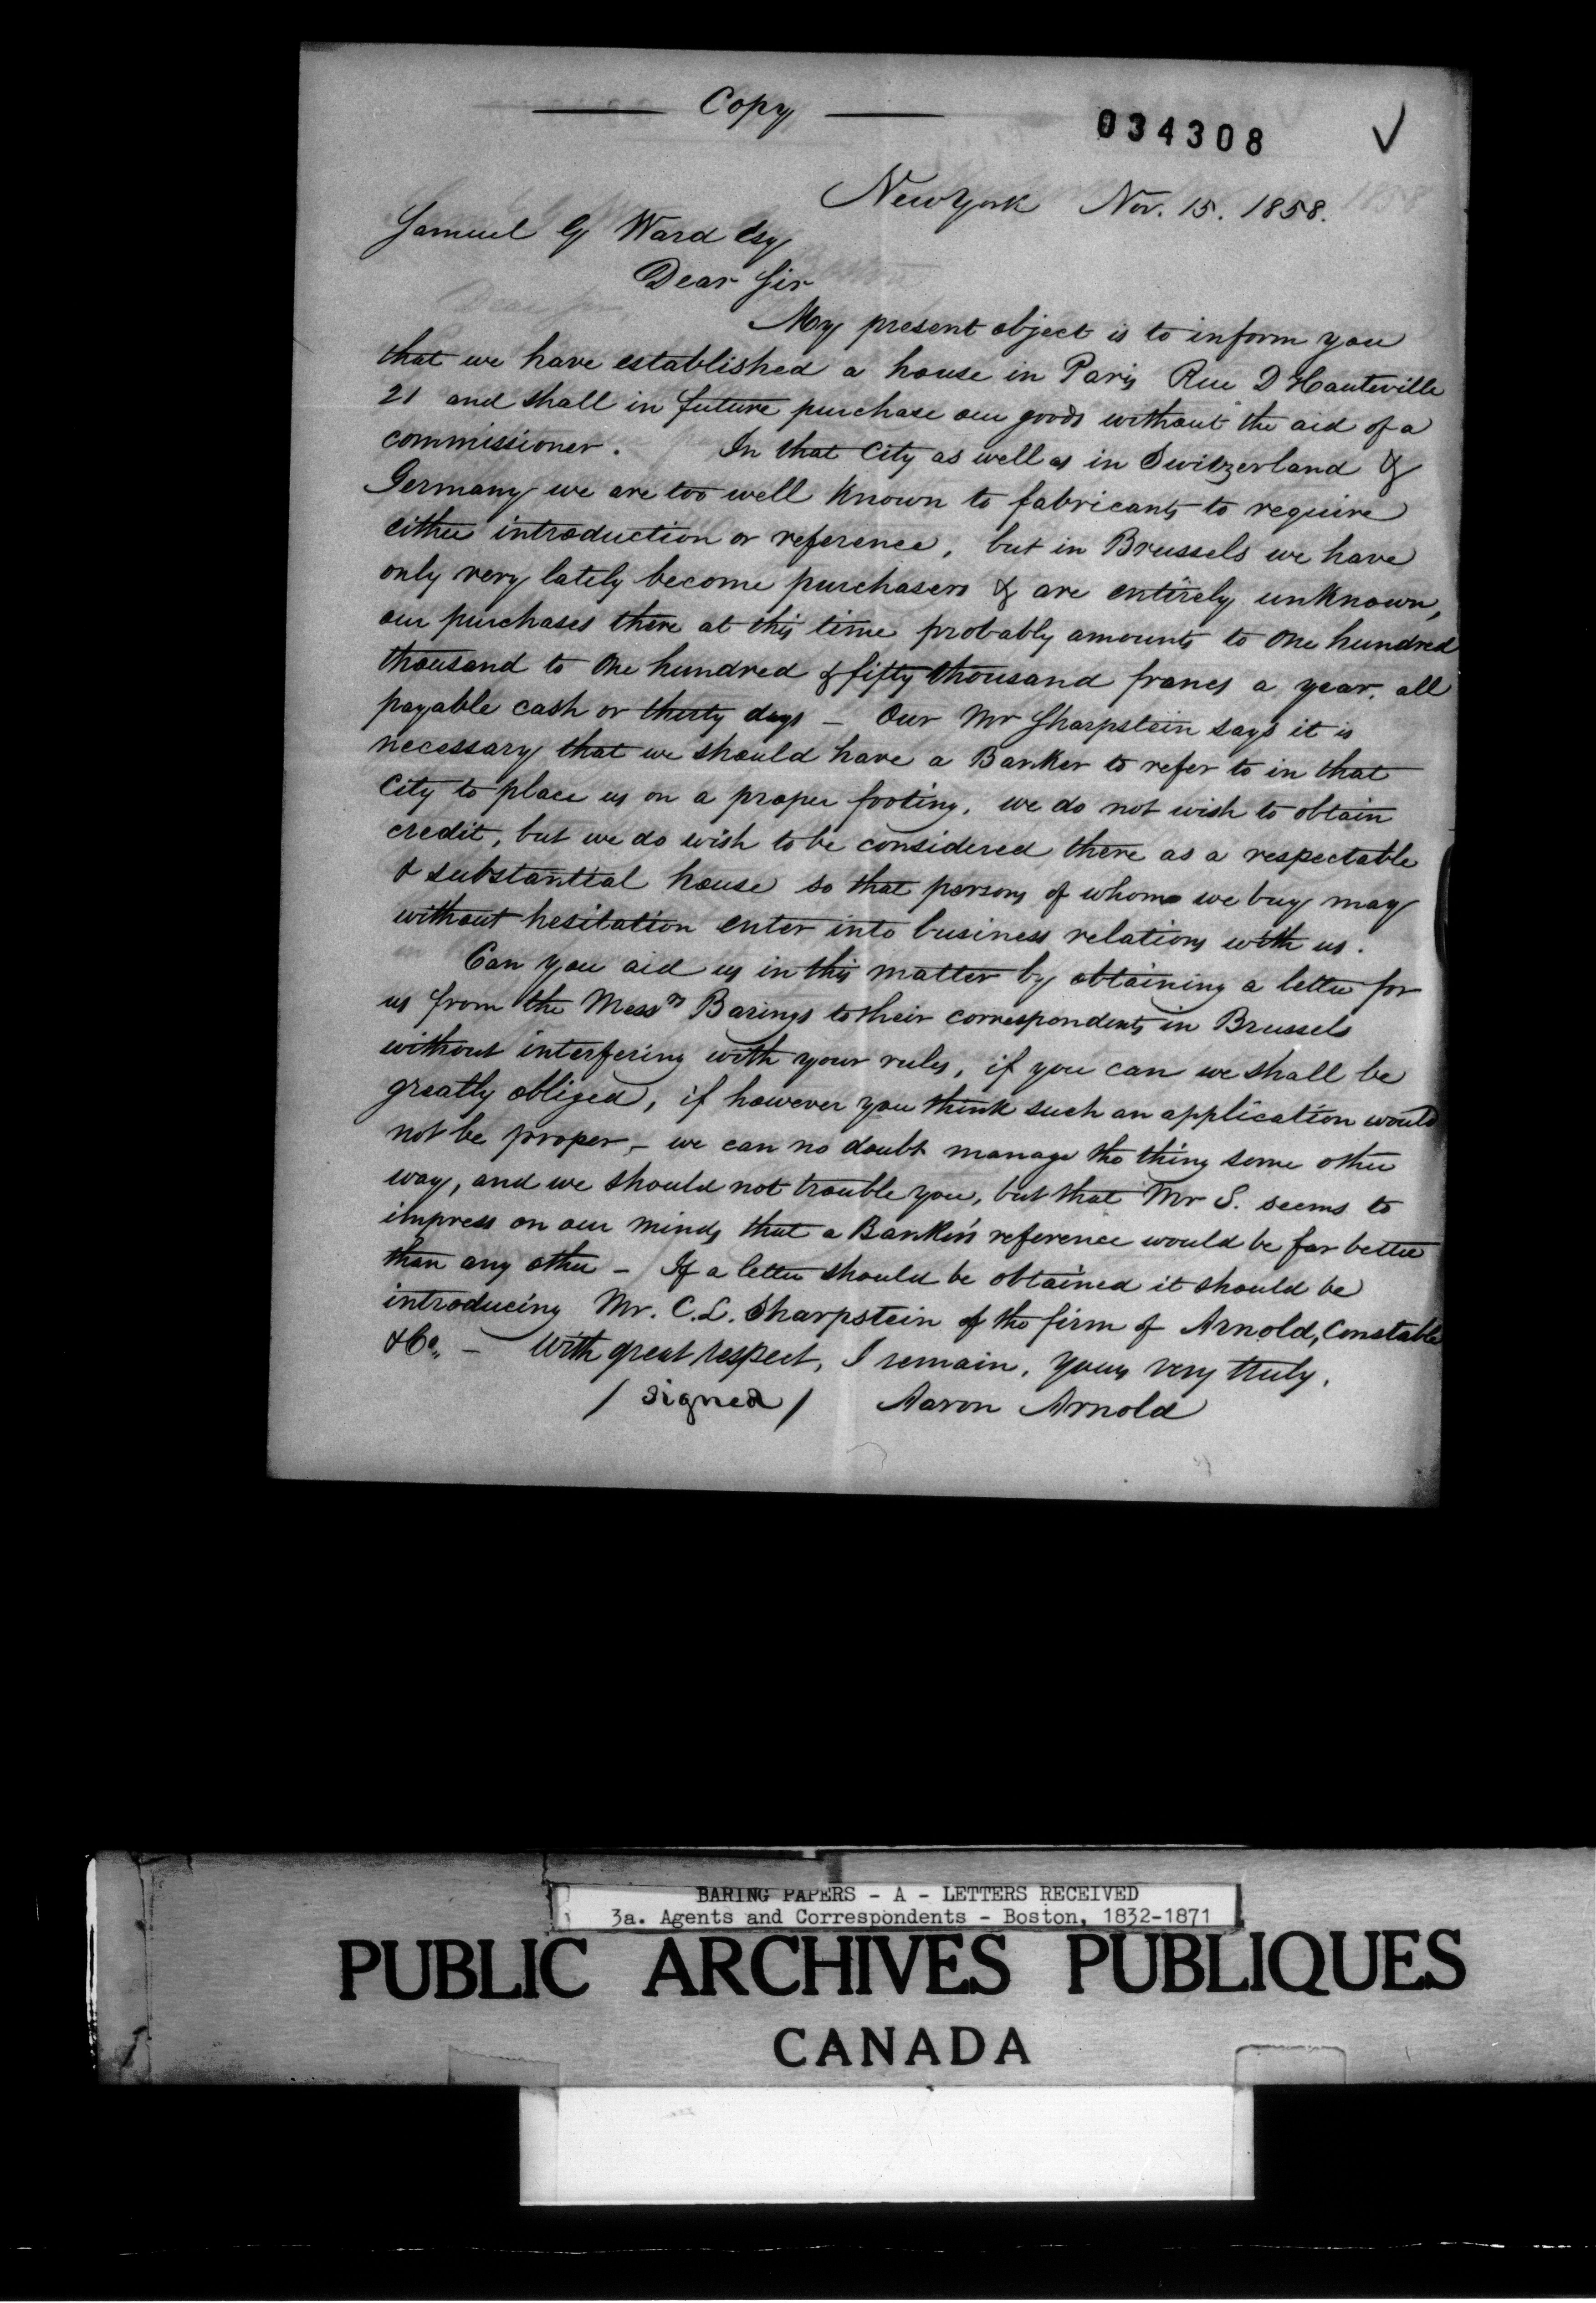 Copy
034308
New York Nov. 15. 1858.
Samuel G Ward Esq
Dear Sir
My present object is to inform you
that we have established a house in Paris Rue D'Hauteville
21 and shall in future purchase our goods without the aid of a
commissioner. In that City as well as in Switzerland &
Germany we are too well known to fabricants to require
either introduction or reference, but in Brussels we have
only very lately become purchasers & are entirely unknown,
our purchases there at this time probably amounts to one hundred
thousand to one hundred & fifty thousand francs a year, all
payable cash or thirty days - Our Mr Sharpstein says it is
necessary that we should have a Banker to refer to in that
City to place us on a proper footing, we do not wish to obtain
credit, but we do wish to be considered there as a respectable
& substantial house so that persons of whom we buy may
without hesitation enter into business relations with us.
Can you aid us in this matter by obtaining a letter for
us from the Messrs Barings to their correspondents in Brussels
without interfering with your rules, if you can we shall be
greatly obliged, if however you think such an application would
not be proper, - we can no doubt manage the thing some other
way, and we should not trouble you, but that Mr S. seems to
impress on our minds that a Banker's reference would be far better
than any other - If a letter should be obtained it should be
introducing Mr. C.L. Sharpstein of the firm of Arnold, Constable
& Co. - With great respect, I remain, yours very truly.
/ signed / Aaron Arnold
BARING PAPERS - A - LETTERS RECEIVED
3a. Agents and Correspondents - Boston, 1832-1871
PUBLIC ARCHIVES PUBLIQUES
CANADA